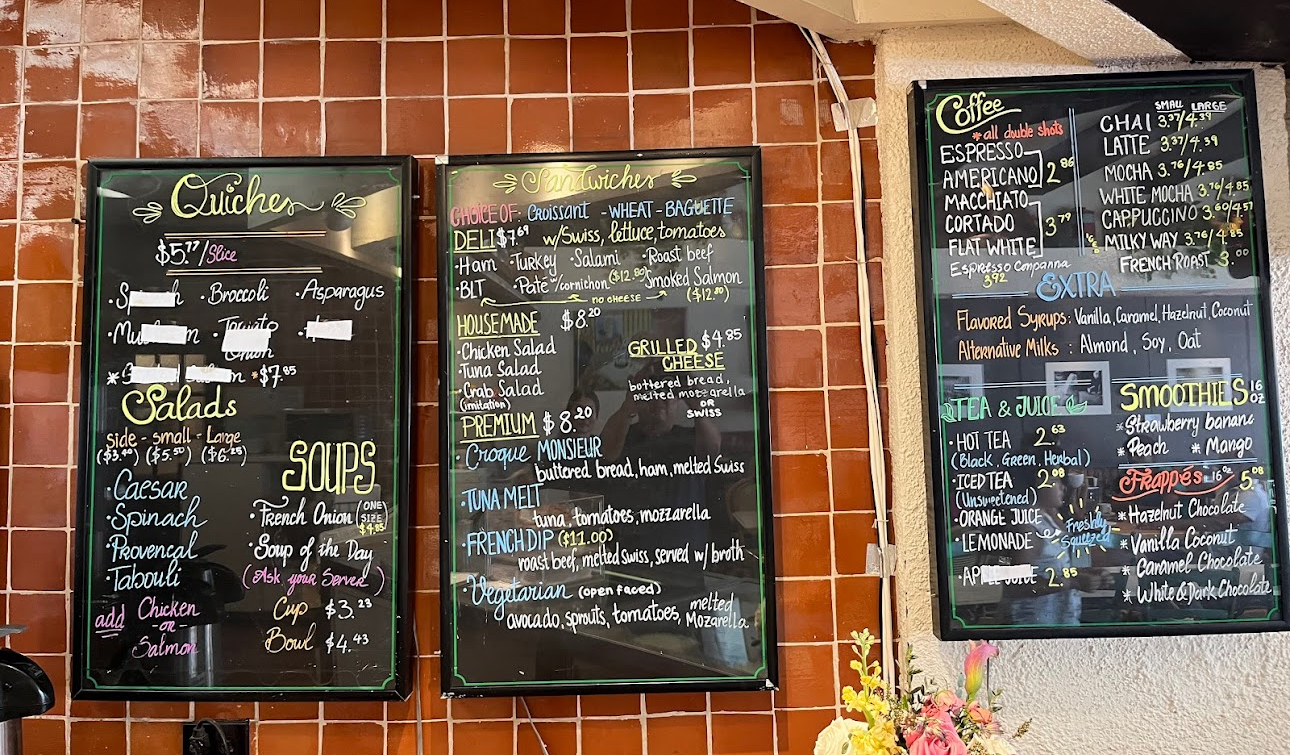 Quiches
/Slice
·Broccoli
·Asparagus
$7.85
Salads
Side - small - Large
Caesar
·Spinach
·Provençal
·Tabouli
add Chicken
-OR-
Salmon
SOUPS
·French Onion (ONE
SIZE
$4.85
·Soup of the Day
(Ask your Server)
Cup $3.23
Bowl $4.43
Sandwiches
CHOICE OF: Croissant - WHEAT - BAGUETTE
DELI $7.69 w/Swiss, lettuce, tomatoes
·Ham ·Turkey ·Salami ·Roast beef
·BLT ·Pate w/cornichon ($12.80) Smoked Salmon
NO CHEESE ($12.80)
HOUSEMADE $8.20
·Chicken Salad
·Tuna Salad
·Crab Salad
(imitation)
GRILLED $4.85
CHEESE
buttered bread,
melted mozzarella
OR
SWISS
PREMIUM $8.20
·Croque MONSIEUR
buttered bread, ham, melted Swiss
·TUNA MELT
tuna, tomatoes, mozzarella
·FRENCH DIP ($11.00)
roast beef, melted swiss, served w/ broth
·Vegetarian (open faced)
avocado, sprouts, tomatoes, melted
Mozarella
Coffee
*all double shots
ESPRESSO
AMERICANO 2.86
MACCHIATO
CORTADO 3.79
FLAT WHITE
Espresso Companna
3.92
SMALL LARGE
CHAI 3.37/4.39
LATTE 3.37/4.39
MOCHA 3.76/4.85
WHITE MOCHA 3.76/4.85
CAPPUCCINO 3.60/4.57
MILKY WAY 3.76/4.85
FRENCH ROAST 3.00
EXTRA
Flavored Syrups: Vanilla, Caramel, Hazelnut, Coconut
Alternative Milks : Almond, Soy, Oat
TEA & JUICE
·HOT TEA 2.63
(Black, Green, Herbal)
·ICED TEA 2.08
(Unsweetened)
·ORANGE JUICE
·LEMONADE
Freshly
Squeezed
2.85
SMOOTHIES 16
OZ
*Strawberry banana
*Peach * Mango
Frappés 16 oz 5.08
*Hazelnut Chocolate
*Vanilla Coconut
* Caramel Chocolate
* White & Dark Chocolate